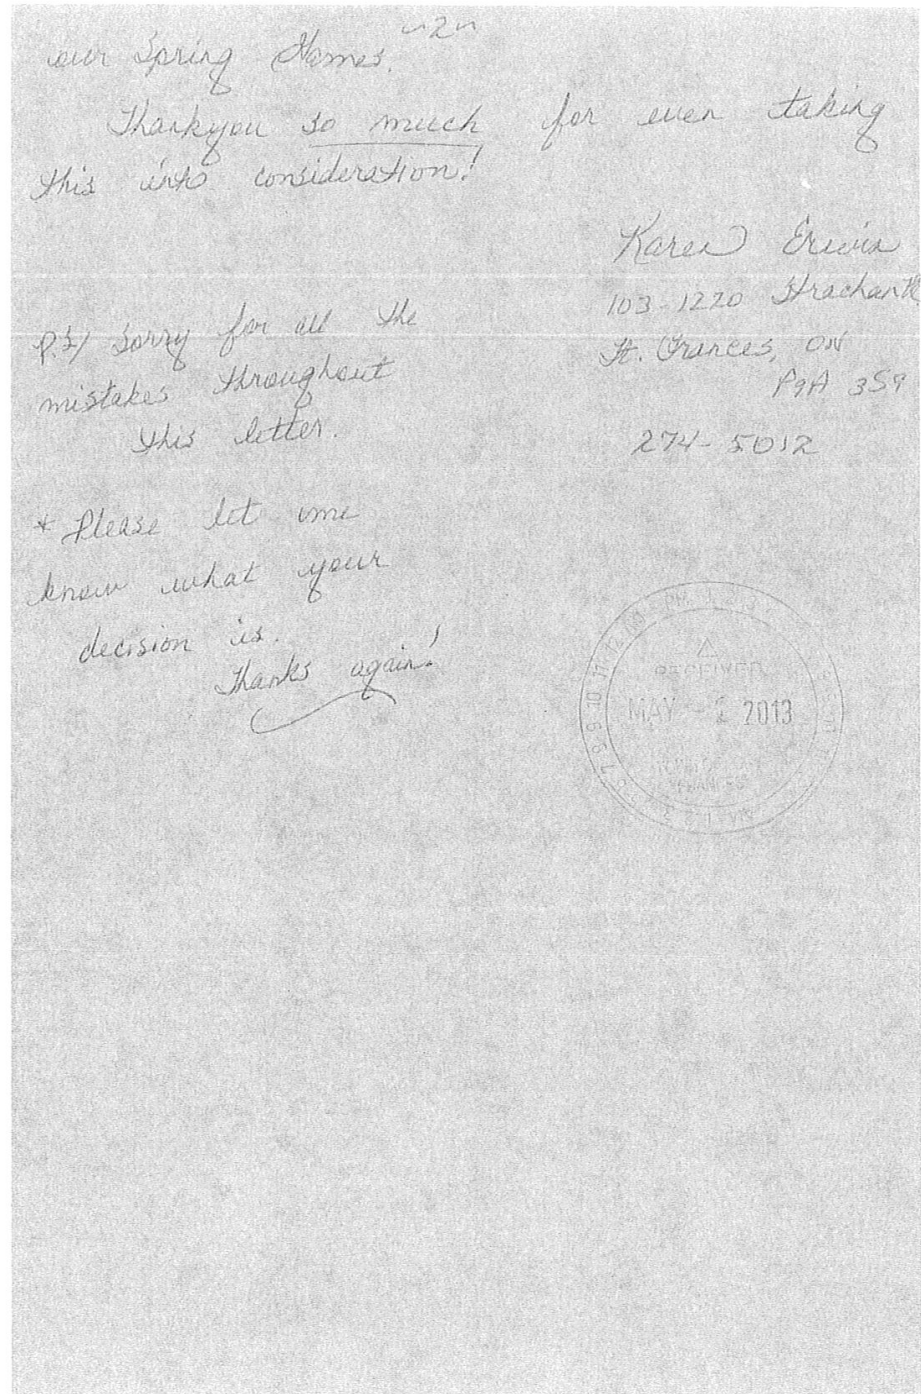 ~2~
our Spring Games.
Thankyou so much for even taking
this into consideration!
Karen Erwin
103-1220 Strachan
Ft. Frances, ON
P9A 3S9
274-5012
P.S./ Sorry for all the
mistakes throughout
this letter.
* Please let me
know what your
decision is.
Thanks again!
RECEIVED
MAY - 2 2013
FRANCES